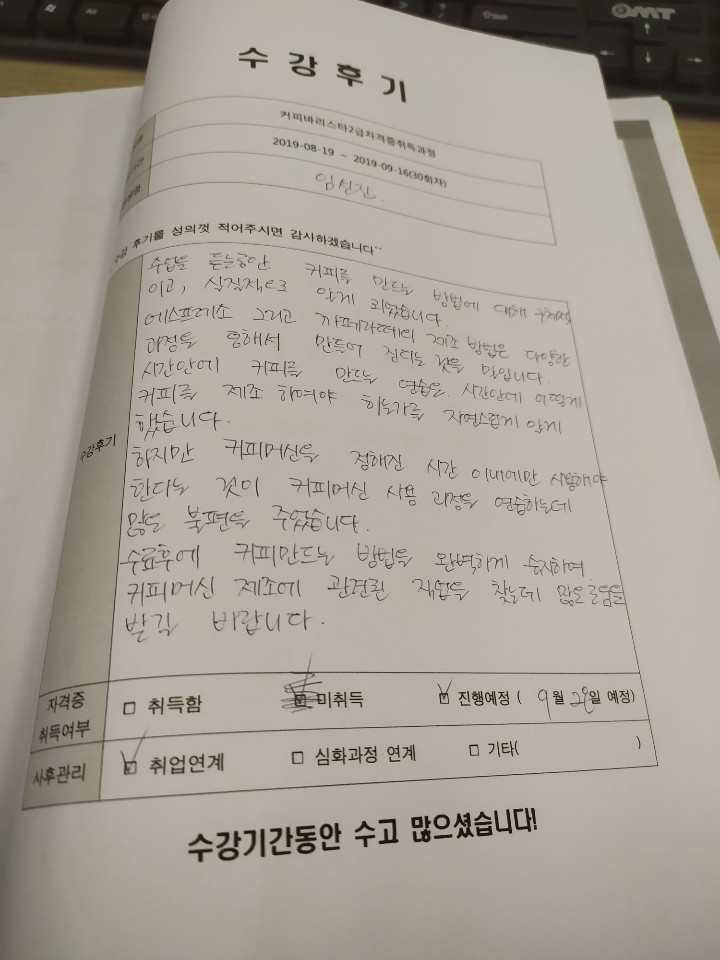 OMT
수 강 후 기
커피바리스타2급자격증취득과정
2019-08-19 ~ 2019-09-16(30회차)
임선진.
후기를 성의껏 적어주시면 감사하겠습니다~~
수강후기
수업을 듣는동안 커피를 만드는 방법에 대해 구체적
이고, 실질적으로 알게 되었습니다.
에스프레소 그리고 까페라떼의 제조 방법은 다양한
과정을 통해서 만들어 진다는 것을 말입니다.
시간안에 커피를 만드는 연습은 시간안에 어떻게
커피를 제조 하여야 하는가를 자연스럽게 알게
했습니다.
하지만 커피머신을 정해진 시간 이내에만 사용해야
한다는 것이 커피머신 사용 과정을 연습하는데
많은 불편을 주었습니다.
수료후에 커피만드는 방법을 완벽하게 숙지하여
커피머신 제조에 관련된 직업을 찾는데 많은도움을
받길 바랍니다.
자격증
취득여부
□ 취득함 □ 미취득 □ 진행예정 ( 9월 28일 예정)
사후관리 □ 취업연계 □ 심화과정 연계 □ 기타( )
수강기간동안 수고 많으셨습니다!